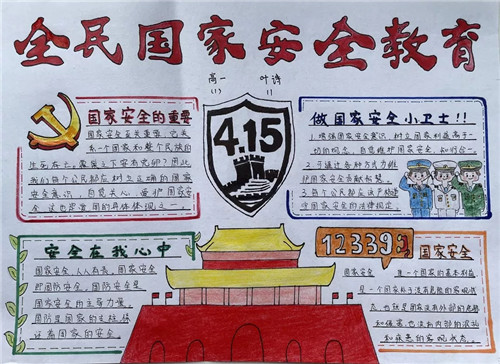 全民国家安全教育
高一
(1)
叶诗
国家安全的重要
国家安全至关重要,它关
系一个国家及整个民族的
生死存亡,家是天下安有完卵?因此
我们每个公民都应树立正确的国家
安全意识,自觉关心、爱护国家安
全,这也是爱国的具体体现之一。
4.15
做国家安全小卫士!!
1.增强国家安全意识,树立国家利益高于一
切的观念,自觉维护国家安全,知行合一
2.通过各种方式为维
护国家安全贡献智慧。
3.每个公民都应该严格遵
守国家安全的法律规定。
安全在我心中
国家安全,人人有责,国家安全
即国防安全,国防安全是
国家安全的主导力量,
国防是国家的支柱,保
证着国家的安全。
12339
国家安全
国家安全 是一个国家的基本利益
是一个国家处于没有危险的客观状
态,也就是国家没有外部的威胁
和侵害也没有内部的混乱
和疾患的客观状态。